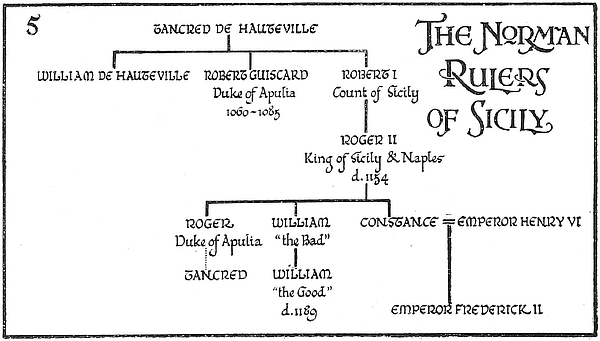 5
THE NORMAN
RULERS
OF SICILY
TANCRED DE HAUTEVILLE
WILLIAM DE HAUTEVILLE
ROBERT GUISCARD
Duke of Apulia
1060-1085
ROBERT I
Count of Sicily
ROGER II
King of Sicily & Naples
d. 1154
ROGER
Duke of Apulia
TANCRED
WILLIAM
"the Bad"
WILLIAM
"the Good"
d. 1189
CONSTANCE = EMPEROR HENRY VI
EMPEROR FREDERICK II